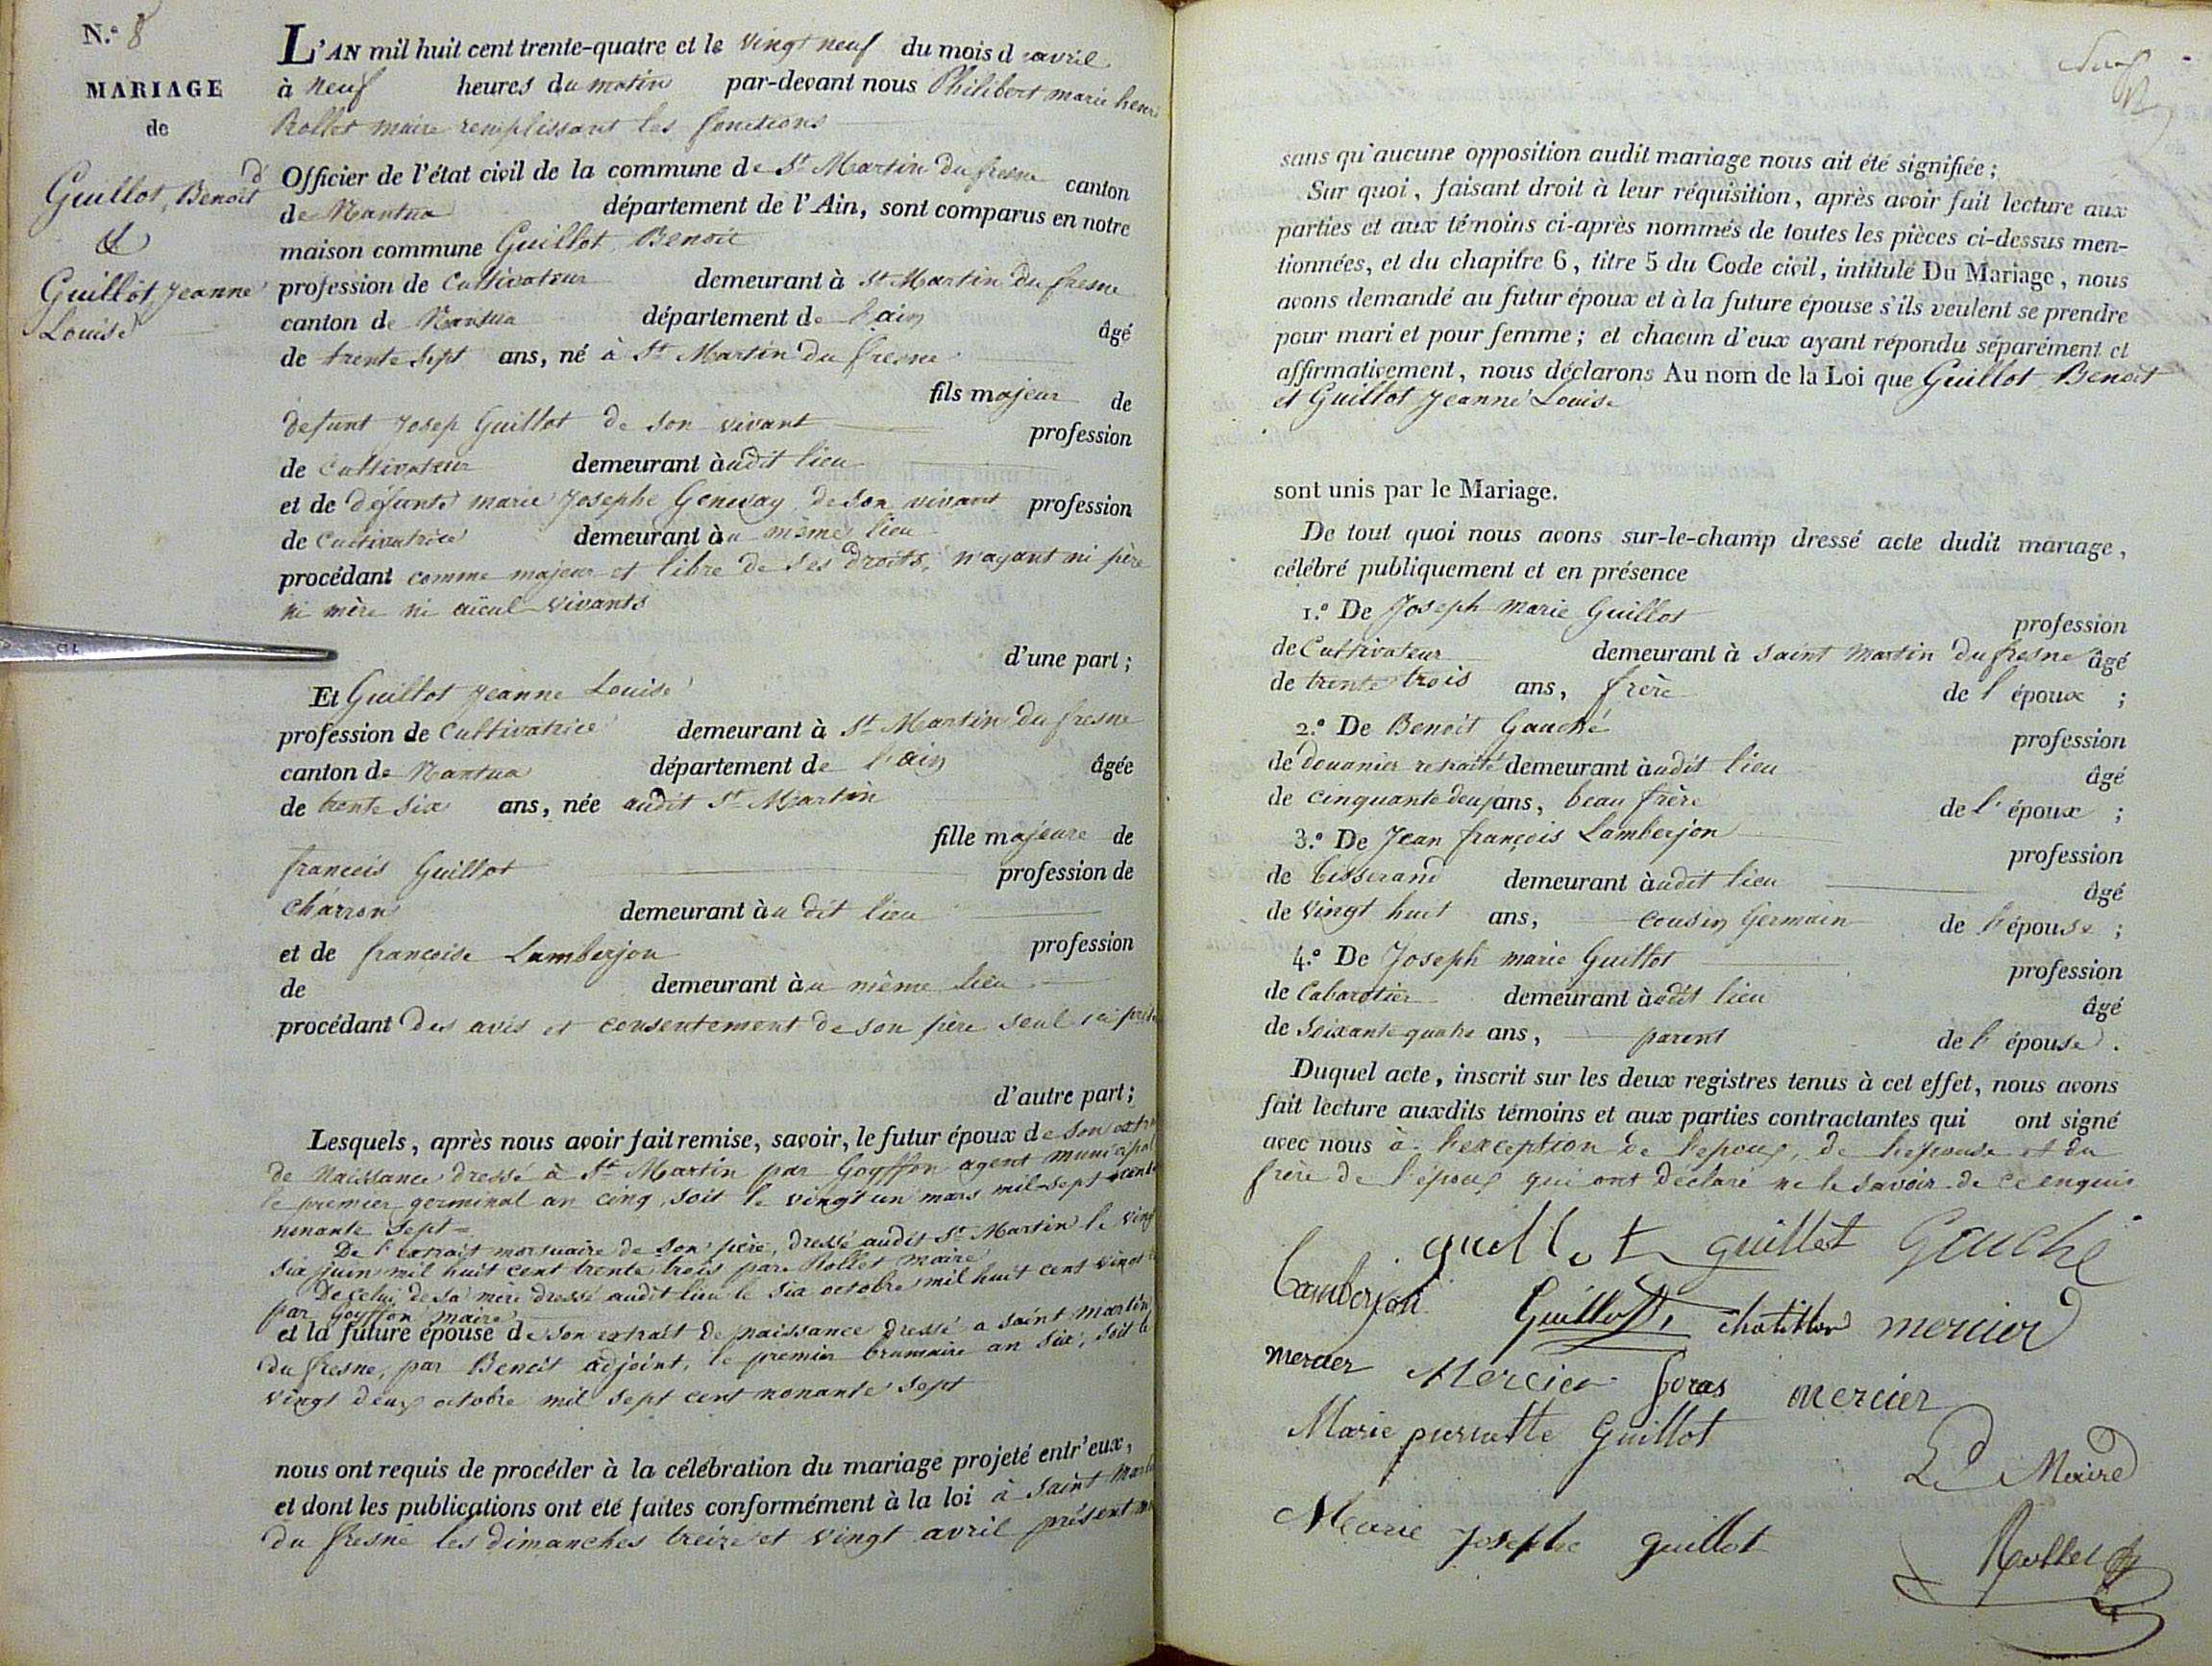 N.º 8
MARIAGE
de
Guillot, Benoit
&
Guillot Jeanne
Louise
L'AN mil huit cent trente-quatre et le vingt neuf du mois d avril
à neuf heures du matin par-devant nous Philibert marie henri
Rollet maire remplissant les fonctions
d' Officier de l'état civil de la commune de St Martin du fresne canton
de Nantua département de l'Ain, sont comparus en notre
maison commune Guillot Benoit
profession de Cultivateur demeurant à St Martin du fresne
canton de Nantua département de l'ain âgé
de trente sept ans, né à St Martin du fresne
fils majeur de
defunt Josep Guillot de son vivant profession
de Cultivateur demeurant àudit lieu
et de défunte marie Josephe Genevay de son vivant profession
de Cultivatrice demeurant àu même lieu
procédant comme majeur et libre de ses droits, n'ayant ni père
ni mère ni aïeul vivants
d'une part;
Et Guillot Jeanne Louise
profession de Cultivatrice demeurant à St Martin du fresne
canton de Nantua département de l'ain âgée
de trente six ans, née audit St Martin
fille majeure de
francois Guillot profession de
charron demeurant àu dit lieu
et de francoise Lamberjon profession
de demeurant àu même lieu
procédant des avis et consentement de son père seul ici prés
d'autre part;
Lesquels, après nous avoir fait remise, savoir, le futur époux de son extr
de Naissance dressé à St Martin par Goyffon agent municipal
le premier germinal an cinq, soit le vingt un mars mil sept cent
nonante sept =
De l'extrait mortuaire de son père, dressé audit St Martin le vingt
six juin mil huit cent trente trois par Rollet maire
De celui de sa mère dressé audit lieu le six octobre mil huit cent vingt
par Goyffon maire
et la future épouse de son extrait de naissance dressé a saint martin
du fresne, par Benoit adjoint, le premier brumaire an six, soit le
vingt deux octobre mil sept cent nonante sept
nous ont requis de procéder à la célébration du mariage projeté entr'eux,
et dont les publications ont été faites conformément à la loi à saint Martin
du fresne les dimanches treize et vingt avril présent m
sans qu'aucune opposition audit mariage nous ait été signifiée;
Sur quoi, faisant droit à leur réquisition, après avoir fait lecture aux
parties et aux témoins ci-après nommés de toutes les pièces ci-dessus men-
tionnées, et du chapitre 6, titre 5 du Code civil, intitulé Du Mariage, nous
avons demandé au futur époux et à la future épouse s'ils veulent se prendre
pour mari et pour femme; et chacun d'eux ayant répondu séparément et
affirmativement, nous déclarons Au nom de la Loi que Guillot Benoit
et Guillot Jeanne Louise
sont unis par le Mariage.
De tout quoi nous avons sur-le-champ dressé acte dudit mariage,
célébré publiquement et en présence
1.º De Joseph marie Guillot profession
de Cultivateur demeurant à saint martin du fresne âgé
de trente trois ans, frère de l'époux ;
2.º De Benoit Gauché profession
de douanier retraité demeurant àudit lieu âgé
de cinquante deux ans, beau frère de l'époux ;
3.º De Jean françois Lamberjon profession
de tisserand demeurant àudit lieu âgé
de vingt huit ans, cousin germain de l'épouse ;
4.º De Joseph marie Guillot profession
de Cabaretier demeurant àudit lieu âgé
de soixante quatre ans, parent de l'épouse .
Duquel acte, inscrit sur les deux registres tenus à cet effet, nous avons
fait lecture auxdits témoins et aux parties contractantes qui ont signé
avec nous à l'exception de l'epoux, de l'epouse et du
frère de l'époux qui ont déclaré ne le savoir de ce enquis
guillot guillet Gauché
Lamberjon Guillot chatillon mercier
mercier Mercier foras mercier
Marie pierrette Guillot
Le Maire
Marie Josephe guillot
Rollet